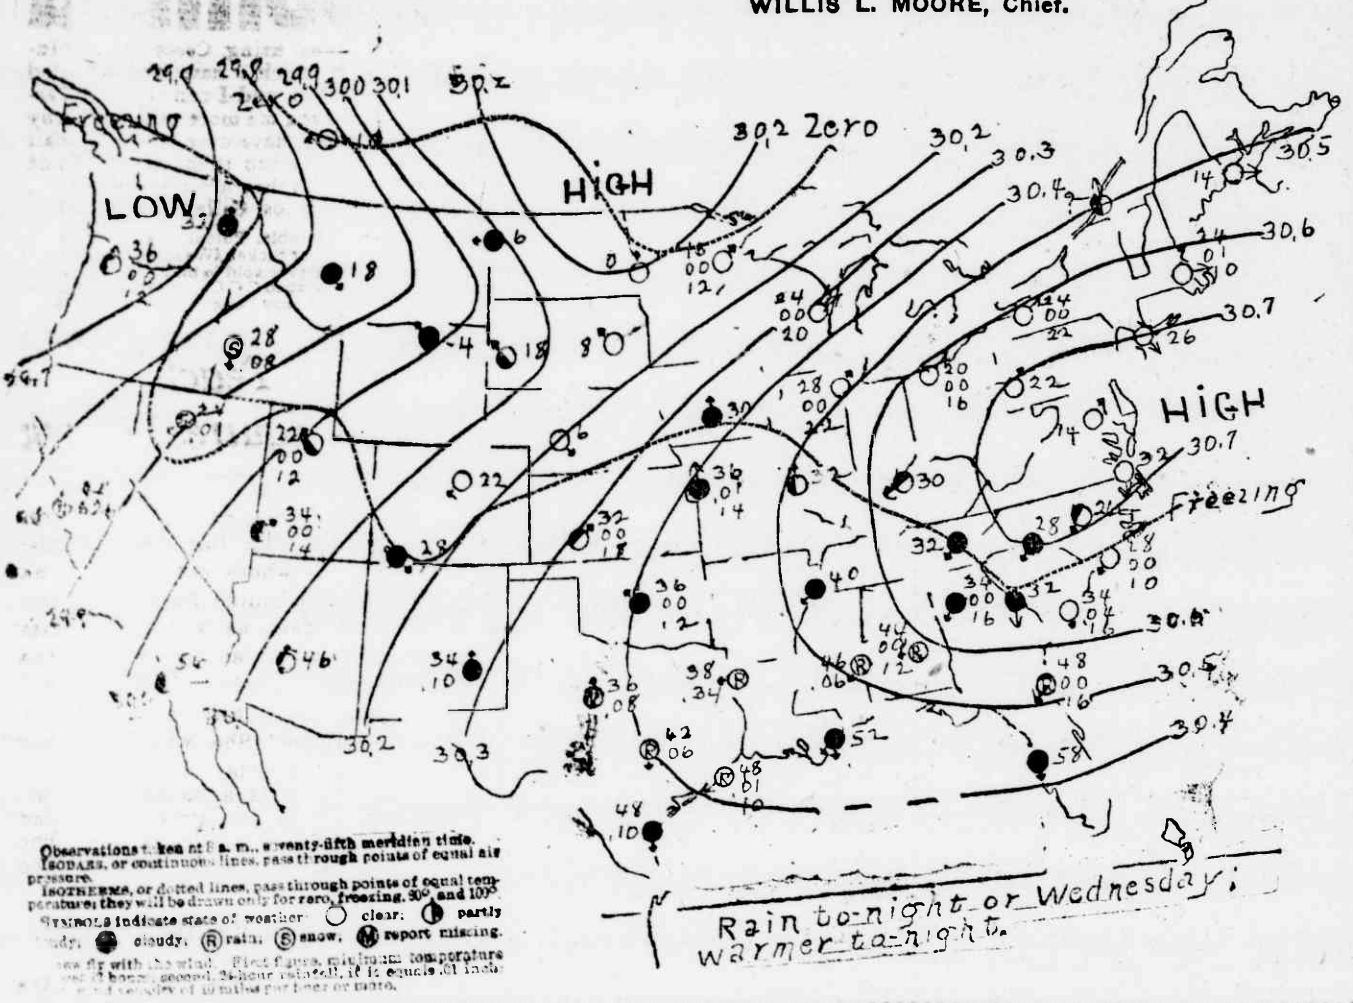 WILLIS L. MOORE, Chief.
29.9 29.8 29.9 30.0 30.1 30.2
Zero
Freezing
30.2 Zero 30.2 30.3
30.4
30.5
HIGH
LOW
30.6
36
00
12
18
6
0
16
00
12
24
00
20
24
00
22
24
01
10
14
30.7
26
28
.08
-4
18
8
28
00
22
20
00
16
22
14
HIGH
30.7
22
00
12
22
6
30
36
.01
14
32
30
32
Freezing
34
00
14
28
32
00
18
32
28
28
00
10
36
00
12
40
34
00
16
32
34
04
16
54
46
34
.10
36
.08
38
.34
46
06
44
12
48
00
16
30.5
30.4
30.2
30.3
42
06
48
.01
10
52
58
48
.10
Observations taken at 8 a. m., seventy-fifth meridian time.
ISOBARS, or continuous lines, pass through points of equal air
pressure.
ISOTHERMS, or dotted lines, pass through points of equal tem-
perature; they will be drawn only for zero, freezing, 90°, and 100°.
SYMBOLS indicate state of weather: clear; partly
cloudy; cloudy; R rain; S snow; M report missing.
fly with the wind. First figure, minimum temperature
hours; second, 24-hour rainfall, if it equals .01 inch;
velocity of 10 miles per hour or more.
Rain to-night or Wednesday;
warmer to-night.